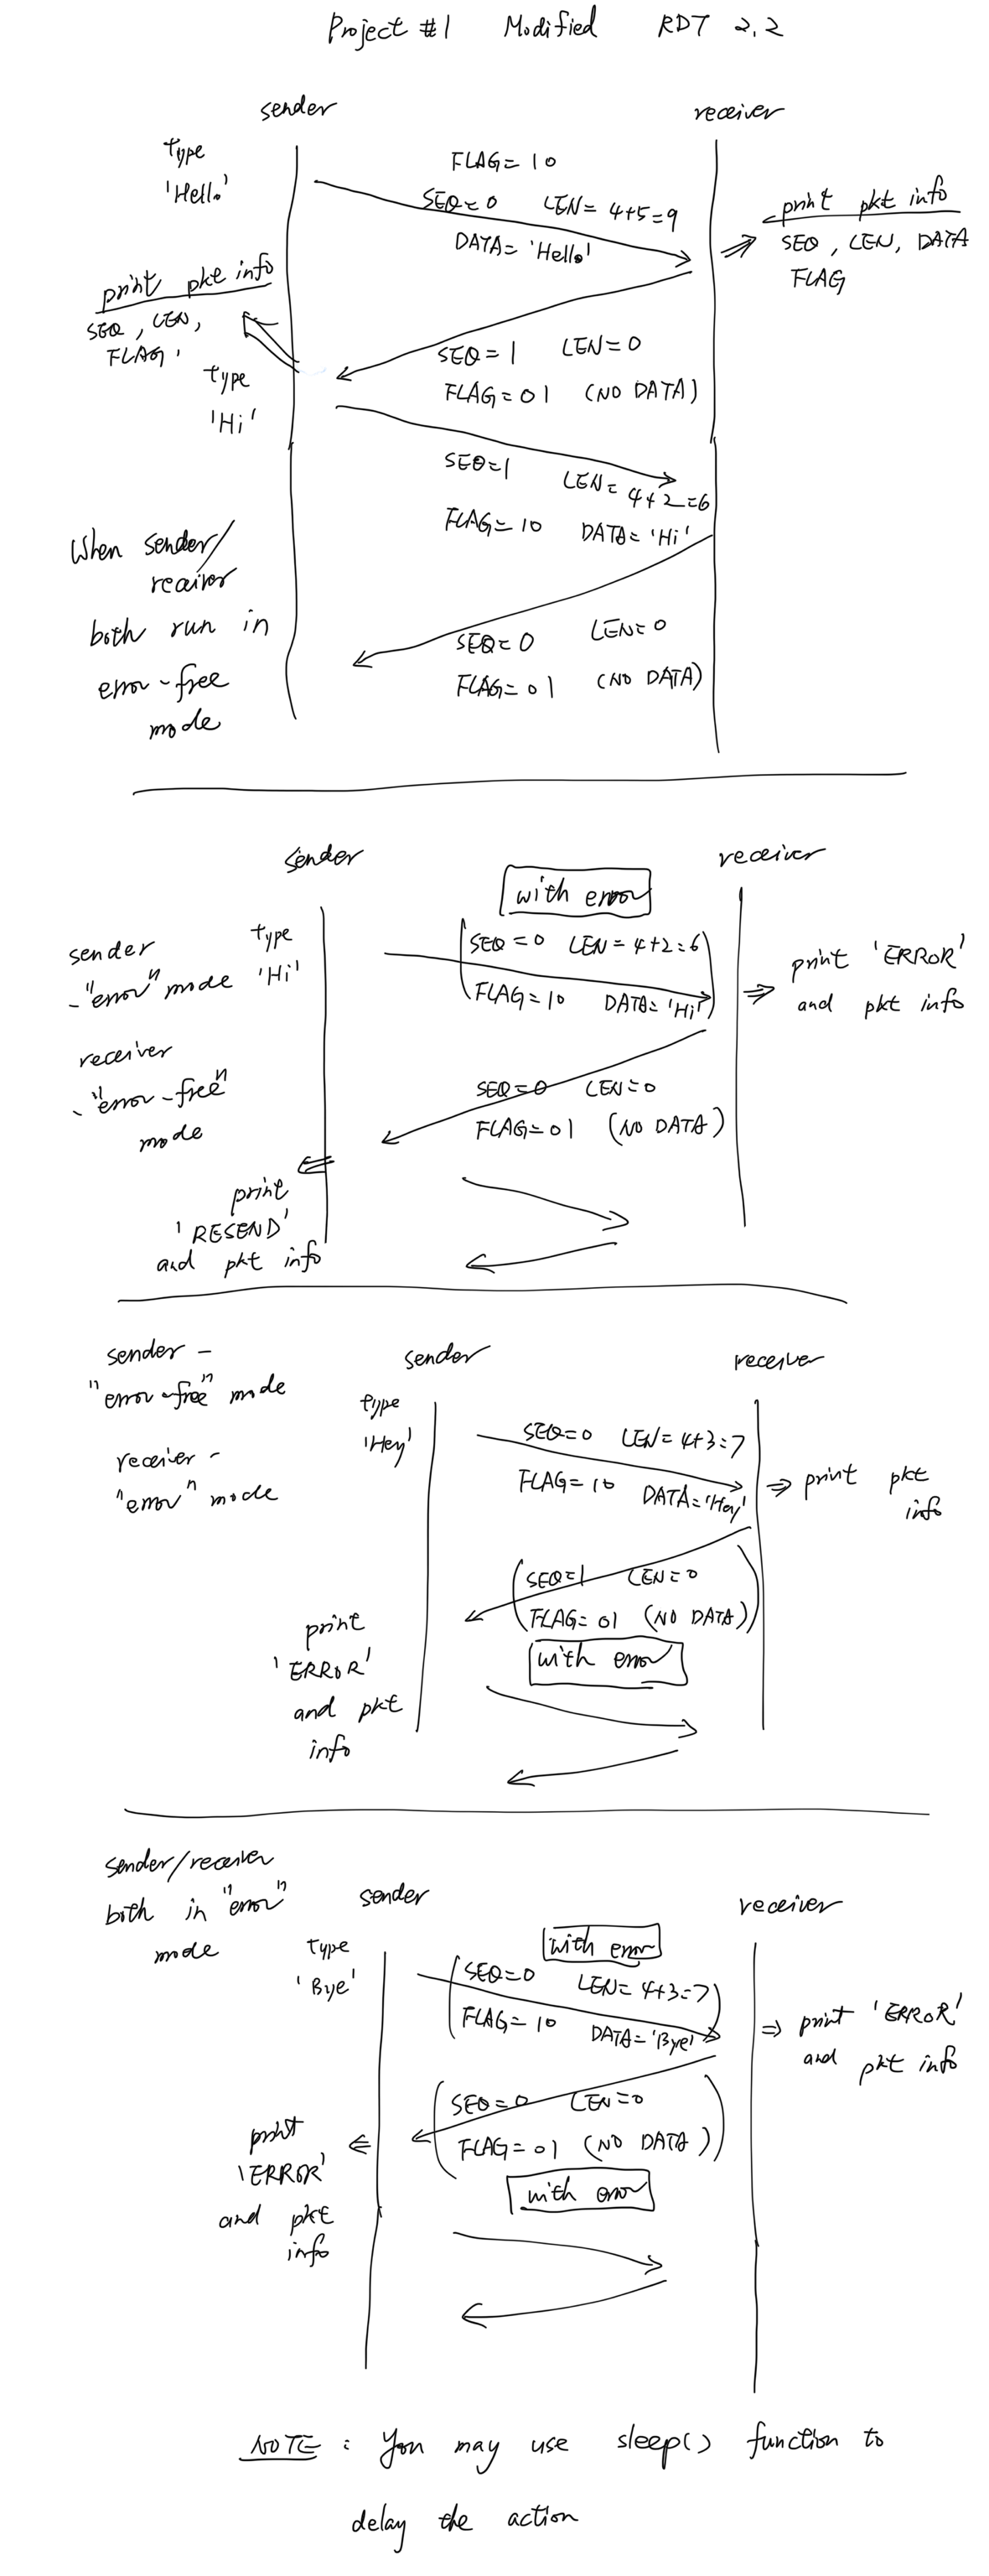 Project #1 Modified RDT 2.2
sender
receiver
type
'Hello'
FLAG = 10
SEQ = 0 LEN = 4+5=9
DATA = 'Hello'
print pkt info
SEQ, LEN, DATA
FLAG
print pkt info
SEQ, LEN,
FLAG,
SEQ = 1 LEN = 0
FLAG = 01 (NO DATA)
type
'Hi'
SEQ=1 LEN = 4+2=6
FLAG = 10 DATA = 'Hi'
When sender/
receiver
both run in
error-free
mode
SEQ = 0 LEN = 0
FLAG = 01 (NO DATA)
sender
receiver
with error
sender
-"error" mode
type
'Hi'
SEQ = 0 LEN = 4+2=6
FLAG = 10 DATA = 'Hi'
print 'ERROR'
and pkt info
receiver
-"error-free"
mode
SEQ = 0 LEN = 0
FLAG = 01 (NO DATA)
print
'RESEND'
and pkt info
sender -
"error-free" mode
receiver -
"error" mode
sender
receiver
type
'Hey'
SEQ=0 LEN = 4+3=7
FLAG = 10 DATA = 'Hey'
print pkt
info
SEQ=1 LEN = 0
FLAG = 01 (NO DATA)
with error
print
'ERROR'
and pkt
info
sender/receiver
both in "error"
mode
sender
receiver
with error
type
'Bye'
SEQ=0 LEN = 4+3=7
FLAG = 10 DATA = 'Bye'
print 'ERROR'
and pkt info
SEQ = 0 LEN = 0
FLAG = 01 (NO DATA)
with error
print
'ERROR'
and pkt
info
NOTE : You may use sleep() function to
delay the action